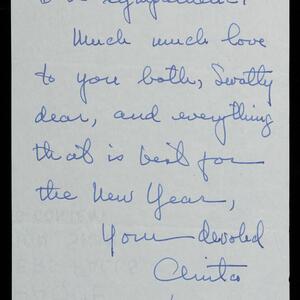 Much much love
to you both,
dear, and everything
that is best for
the New Year,
Your devoted